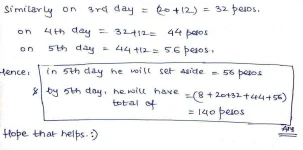 Similarly on 3rd day = (20+12) = 32 pesos.
on 4th day = 32+12 = 44 pesos
on 5th day = 44+12 = 56 pesos.
Hence, in 5th day he will set aside = 56 pesos
& by 5th day, he will have total of = (8+20+32+44+56)
= 140 pesos
Ans
Hope that helps. :)